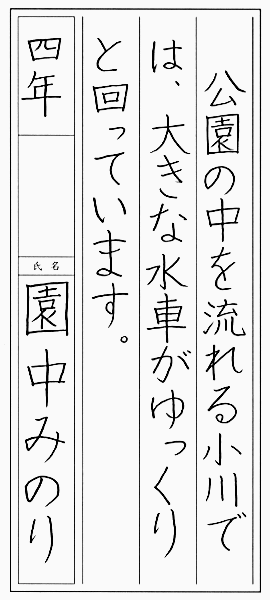 公園の中を流れる小川で
は、大きな水車がゆっくり
と回っています。
四年
氏名
園中みのり